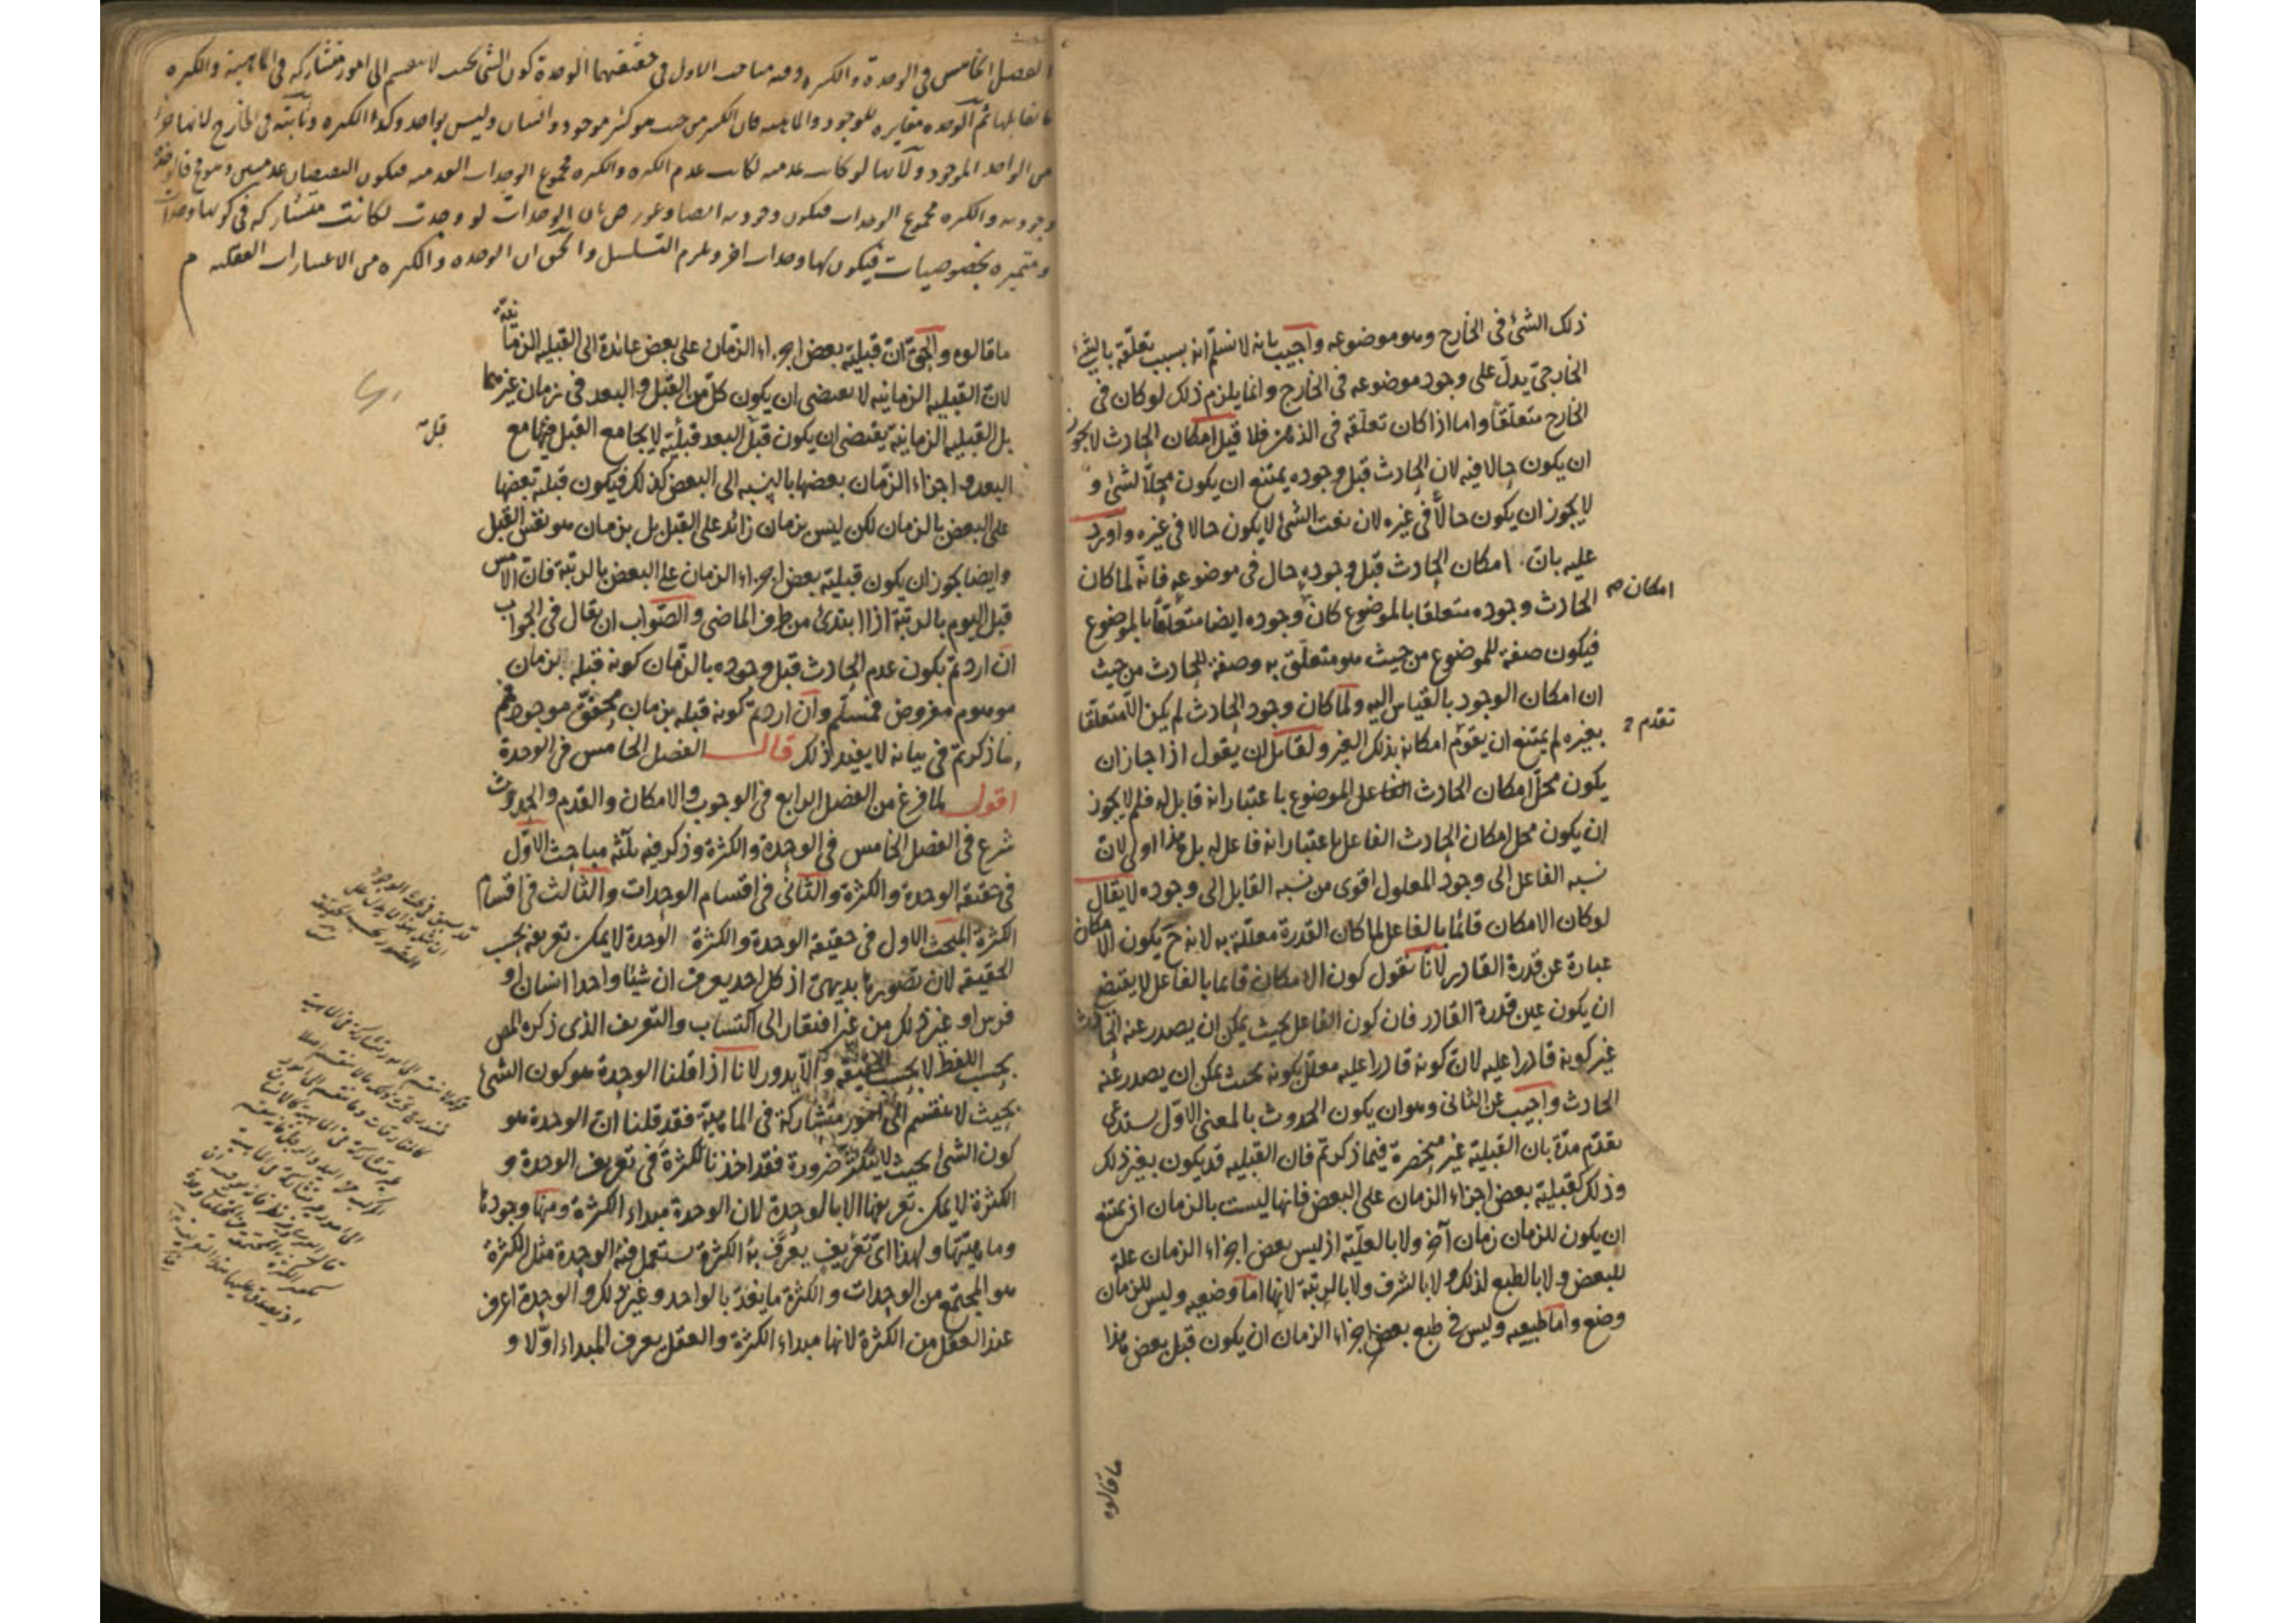 ذلك الشئ فى الخارج وهو موضوعه واجيب بانه لا نسلّم انه بسبب تعلّقه بالشئ
الخارجىّ يدلّ على وجود موضوعه فى الخارج وانما يلزم ذلك لو كان فى
الخارج متعلّقا واما اذا كان تعلّقه فى الذهن فلا قيل امكان الحادث لا يجوز
ان يكون حالا فيه لان الحادث قبل وجوده يمتنع ان يكون محلّا لشئ و
لا يجوز ان يكون حالّا فى غيره لان نعت الشئ لا يكون حالا فى غيره واورد
عليه بانّ امكان الحادث قبل وجوده حال فى موضوعه فانّه لما كان
امكان
الحادث وجوده متعلقا بالموضوع كان وجوده ايضا متعلّقا بالموضوع
فيكون صفة للموضوع من حيث هو متعلّق به وصفة للحادث من حيث
ان امكان الوجود بالقياس اليه ولما كان وجود الحادث لم يكن الّا متعلّقا
تقدم
بغيره لم يمتنع ان يقوم امكانه بذلك الغير ولقائل ان يقول اذا جاز ان
يكون محلّ امكان الحادث الموضوع باعتبار انه قابل له فلم لا يجوز
ان يكون محل امكان الحادث الفاعل باعتبار انه فاعل له بل هذا اولى لانّ
نسبة الفاعل الى وجود المعلول اقوى من نسبة القابل الى وجوده لا يقال
لو كان الامكان قائما بالفاعل لما كان القدرة معلّلة به لانه ح يكون الامكان
عبارة عن قدرة القادر لانّا نقول كون الامكان قائما بالفاعل لا يقتضى
ان يكون عين قدرة القادر فان كون الفاعل بحيث يمكن ان يصدر عنه الحادث
غير كونه قادرا عليه لانّ كونه قادرا عليه معلّل بكونه بحيث يمكن ان يصدر عنه
الحادث واجيب عن الثانى وهو ان يكون الحدوث بالمعنى الاوّل يستدعى
تقدّم مدّة بان القبليّة غير منحصرة فيما ذكرتم فان القبليه قد يكون بغير ذلك
وذلك كقبليّة بعض اجزاء الزمان على البعض فانها ليست بالزمان اذ يمتنع
ان يكون للزمان زمان آخر ولا بالعلّيّة اذ ليس بعض اجزاء الزمان علة
للبعض ولا بالطبع لذلك ولا بالشرف ولا بالرتبة لانها اما وضعيه وليس للزمان
وضع واما طبيعيه وليس فى طبع بعض اجزاء الزمان ان يكون قبل بعض هذا
ما قالوه
الفصل الخامس فى الوحدة والكثره وفيه مباحث الاول فى حقيقتهما الوحدة كون الشئ بحيث لا ينقسم الى امور متشاركه فى الماهية والكثره
ما تقابلها ثم الوحده مغايره للوجود والماهيه فان الكثير من حيث هو كثير موجود وانسان وليس بواحد وكذا الكثره وثابتة فى الخارج لانها جزء
من الواحد الموجود ولانها لو كانت عدميه لكانت عدم الكثره والكثره مجموع الوحدات العدميه فيكون النقيضان عدميين وهو مح فالوحدة
وجوديه والكثره مجموع الوحدات فيكون وجوديه ايضا وعورض بان الوحدات لو وجدت لكانت متشاركه فى كونها وحدات
ومتميزه بخصوصيات فيكون لها وحدات اخر ويلزم التسلسل والحق ان الوحده والكثره من الاعتبارات العقليه م
ما قالوه والحقّ انّ قبليّة بعض اجزاء الزمان على بعض عائدة الى القبليه الزمانيّة
لانّ القبليه الزمانيه لا يقتضى ان يكون كلّ من القبل والبعد فى زمان غيرهما
بل القبليه الزمانية يقتضى ان يكون قبل البعد قبليّة لا يجامع القبل فيها مع
قبليّة
البعد واجزاء الزمان بعضها بالنسبه الى البعض كذلك فيكون قبليّة بعضها
على البعض بالزمان لكن ليس بزمان زائد على القبل بل بزمان هو نفس القبل
وايضا يجوز ان يكون قبليّة بعض اجزاء الزمان على البعض بالرتبة فانّ الامس
قبل اليوم بالرتبة اذا ابتدئ من طرف الماضى والصّواب ان يقال فى الجواب
ان اردتم بكون عدم الحادث قبل وجوده بالزمان كونه قبله بزمان
موهوم مفروض فمسلّم وان اردتم كونه قبله بزمان محقّق موجود فمم
وما ذكرتم فى بيانه لا يفيد ذلك قال الفصل الخامس فى الوحدة
اقول لما فرغ من الفصل الرابع فى الوجوب والامكان والقدم والحدوث
شرع فى الفصل الخامس فى الوحدة والكثرة وذكر فيه ثلثه مباحث الاوّل
فى حقيقة الوحدة والكثرة والثانى فى اقسام الوحدات والثالث فى اقسام
الكثرة المبحث الاول فى حقيقة الوحدة والكثرة الوحدة لا يمكن تعريفه بحسب
الحقيقه لان تصورها بديهىّ اذ كل احد يعرف ان شيئا واحدا انسان او
فرس او غير ذلك من غير افتقار الى اكتساب والتعريف الذى ذكره المص
بحسب اللفظ لا بحسب الحقيقه والّا يدور لانا اذا قلنا الوحدة هو كون الشئ
بحيث لا ينقسم الى امور متشاركة فى الماهية فقد قلنا انّ الوحدة هو
كون الشئ بحيث لا يتكثر ضرورة فقد اخذنا الكثرة فى تعريف الوحدة و
الكثرة لا يمكن تعريفها الا بالوحدة لان الوحدة مبداء الكثرة ومنها وجودها
وماهيتها ولهذا اىّ تعريف يعرّف به الكثرة يستعمل فيه الوحدة مثل الكثرة
هو المجتمع من الوحدات والكثرة ما يعدّ بالواحد وغير ذلك والوحدة اعرف
عند العقل من الكثرة لانها مبداء الكثرة والعقل يعرف المبداء اوّلا و